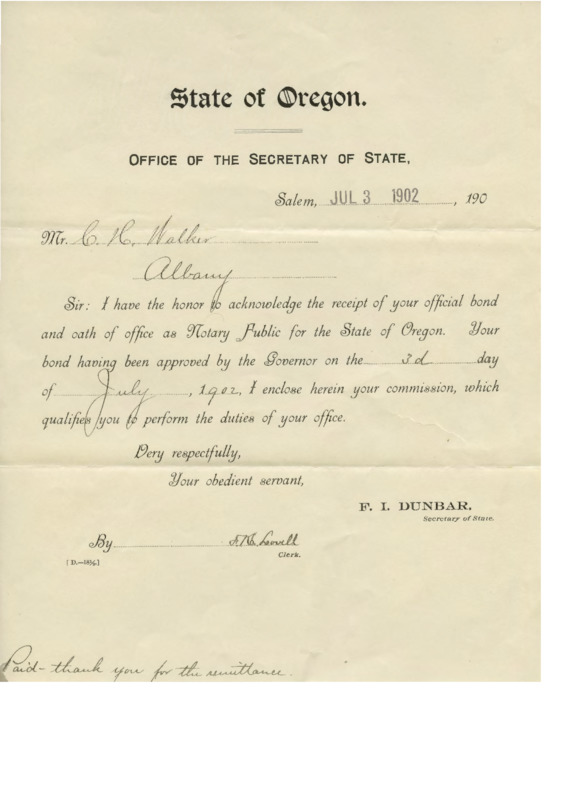 State of Oregon.
OFFICE OF THE SECRETARY OF STATE,
Salem, JUL 3 1902, 190
Mr. C. H. Walker
Albany
Sir: I have the honor to acknowledge the receipt of your official bond
and oath of office as Notary Public for the State of Oregon. Your
bond having been approved by the Governor on the 3d day
of July, 1902, I enclose herein your commission, which
qualifies you to perform the duties of your office.
Very respectfully,
Your obedient servant,
F. I. DUNBAR,
Secretary of State.
By Lovell
Clerk.
[D.—1854.]
Paid - thank you for the remittance.